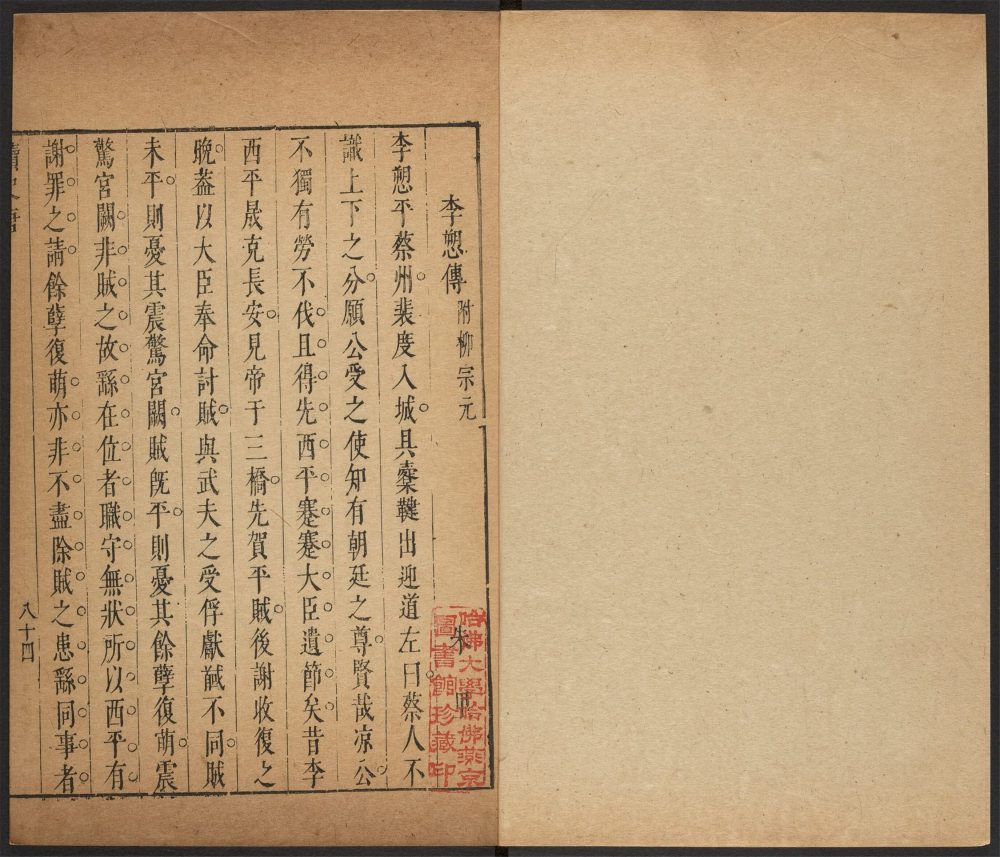 李愬傳附柳宗元
朱
李愬平蔡州裴度入城具櫜鞬出迎道左曰蔡人不
識上下之分願公受之使知有朝廷之尊賢哉凉公
不獨有勞不伐且得先西平蹇蹇大臣遺節矣昔李
西平晟克長安見帝于三橋先賀平賊後謝收復之
晩葢以大臣奉命討賊與武夫之受俘獻馘不同賊
未平則憂其震驚宮闕賊旣平則憂其餘孽復萌震
驚宮闕非賊之故繇在位者職守無狀所以西平有
謝罪之請餘孽復萌亦非不盡除賊之患繇同事者
八十四
哈佛大學哈佛燕京
圖書館珍藏印